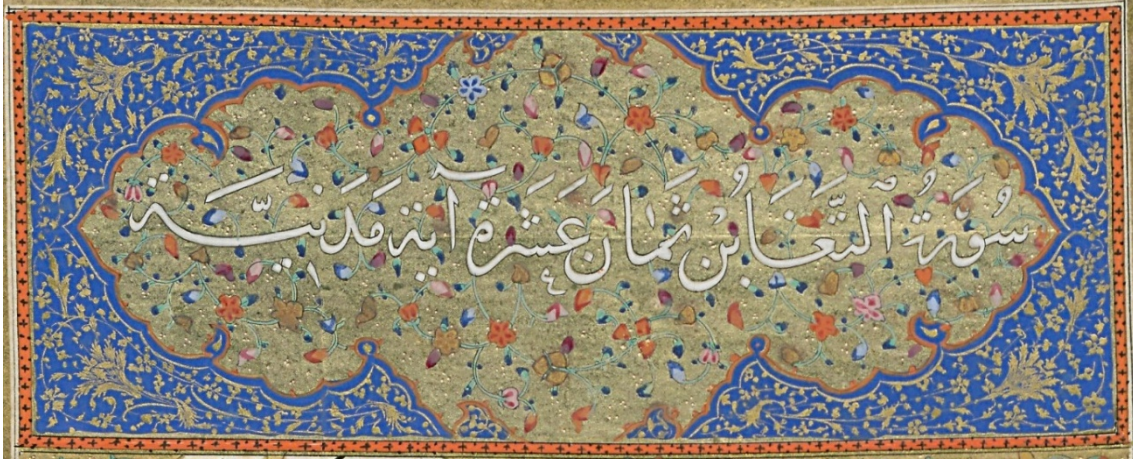 سُورَةُ التَّغَابُنِ ثَمَانَ عَشَرَةَ آيَة مَدَنِيَّة